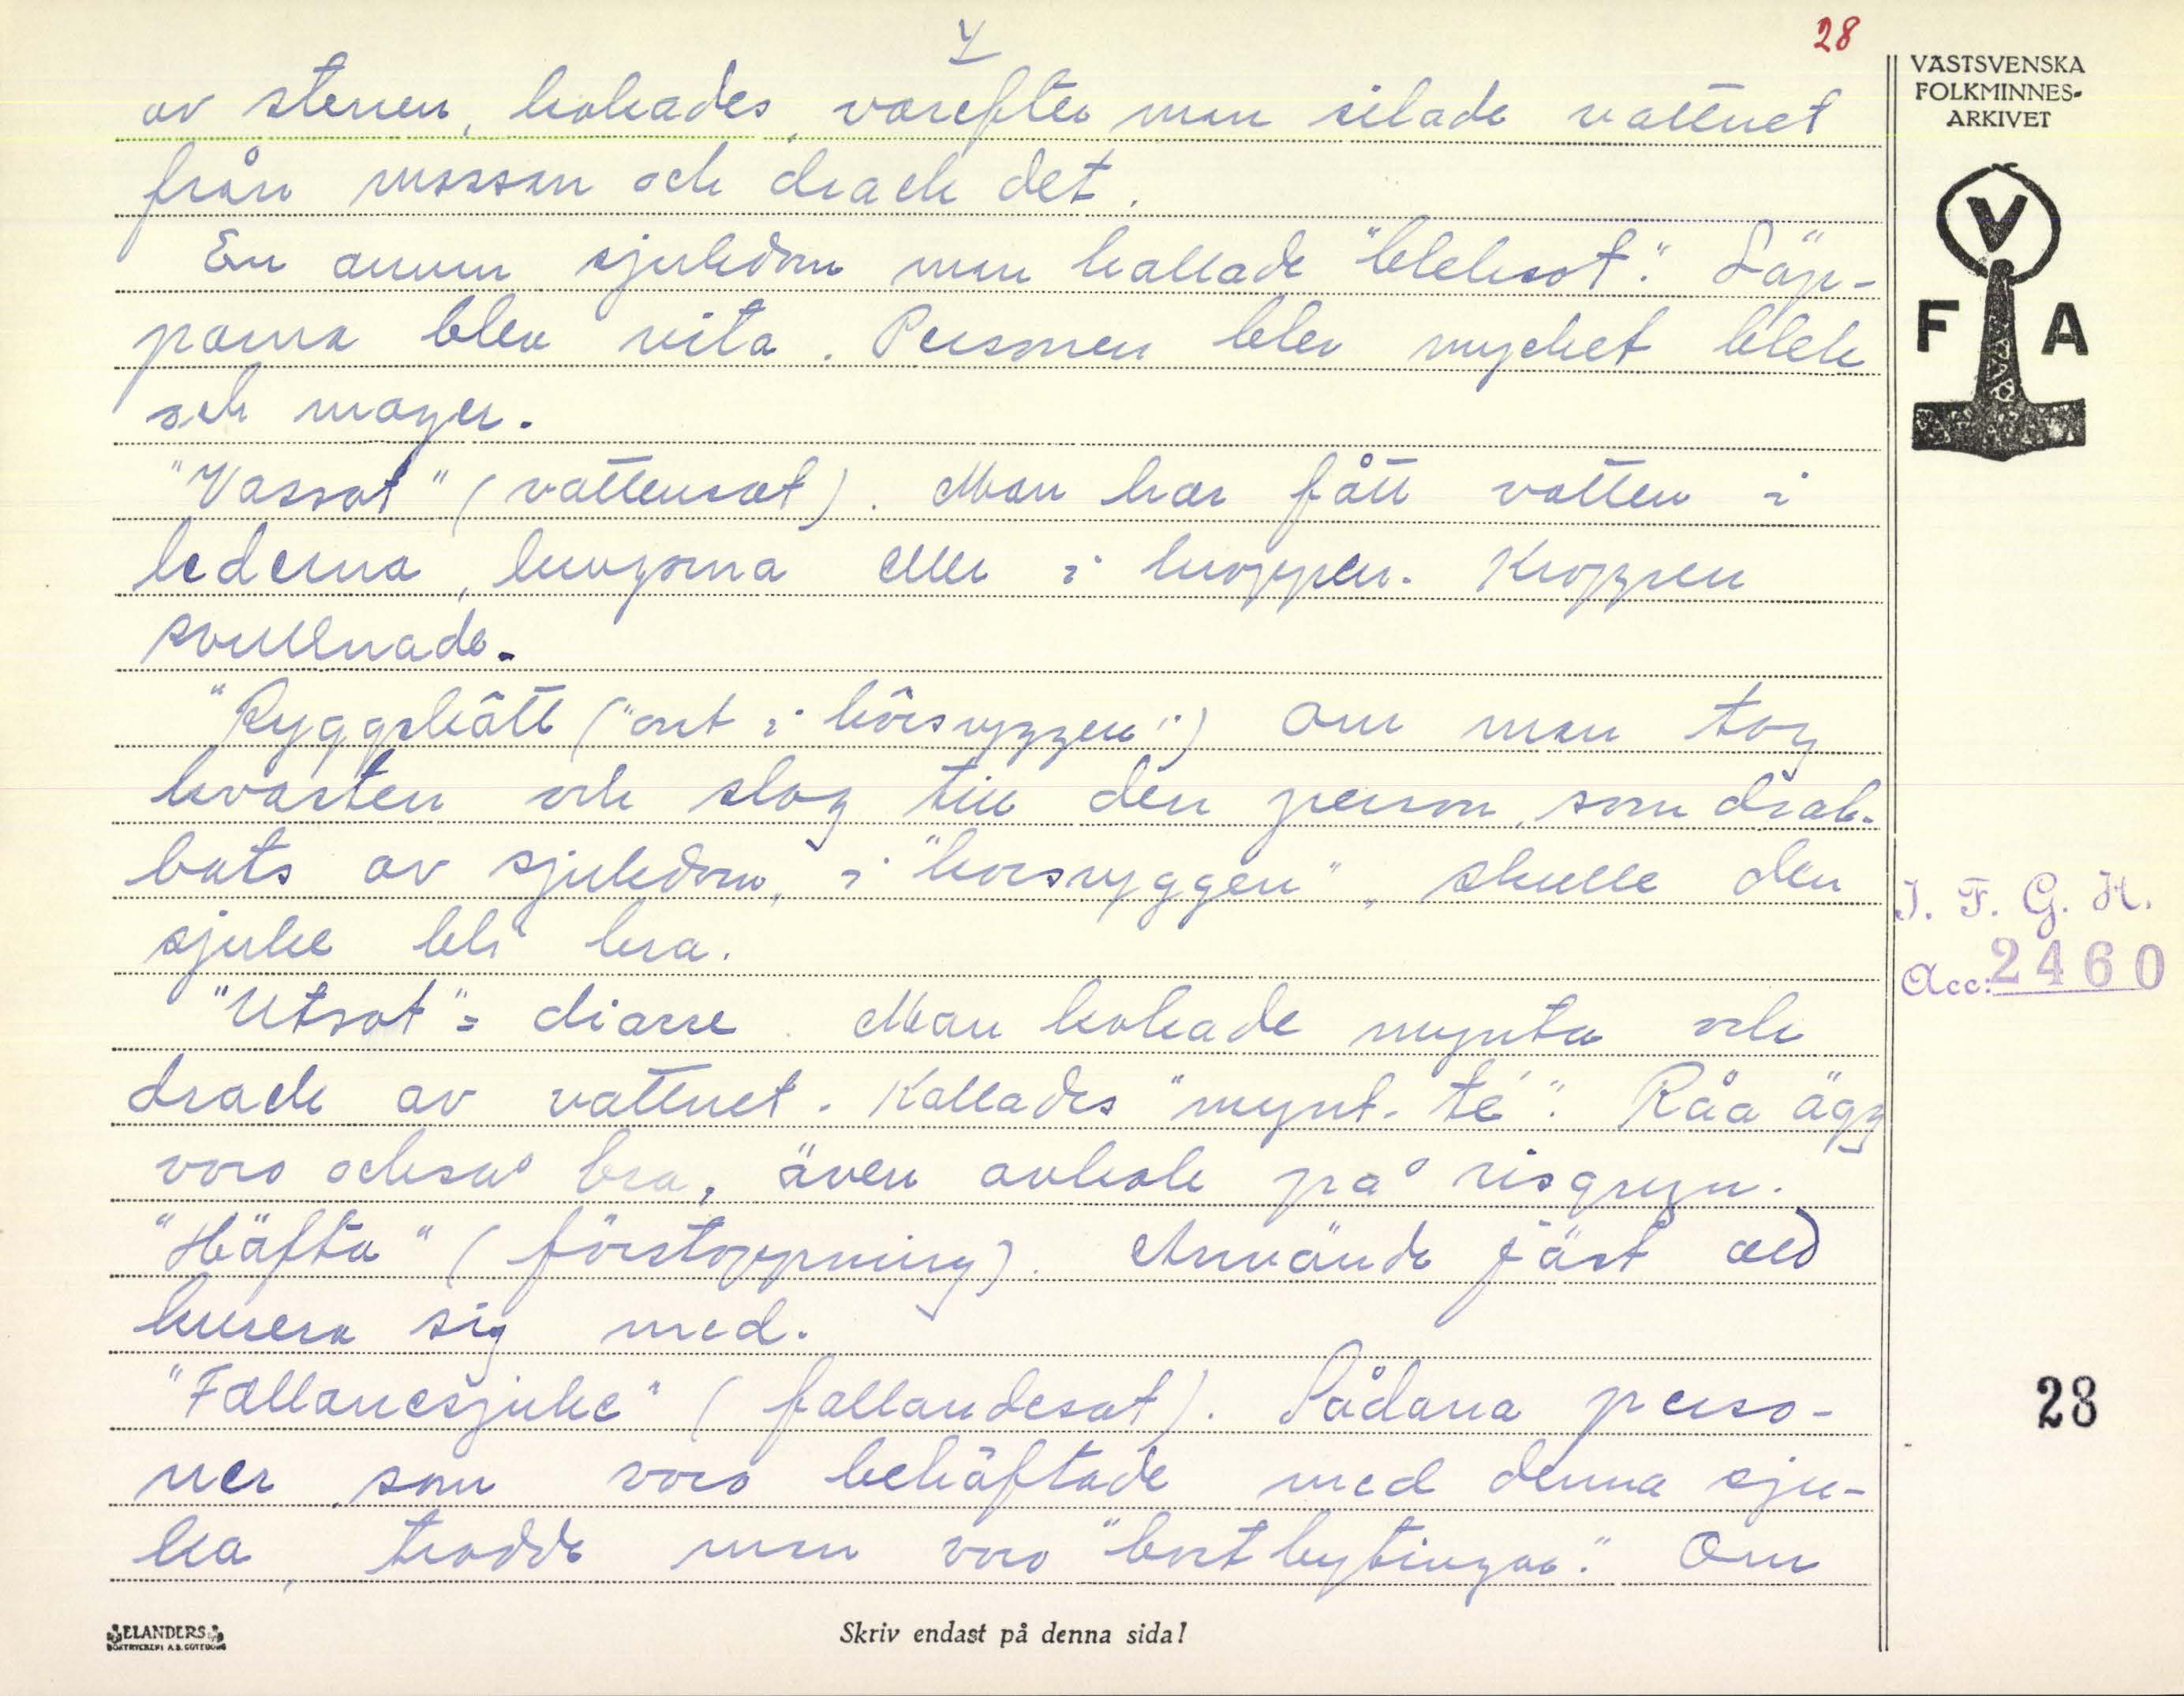 28
av stenen, kokades, varefter man silade vattnet
från mossan och drack det.
En annan sjukdom man kallade "bleksot". Läp-
parna blev vita. Personen blev mycket blek
och mager.
"Vassot" (vattensot). Man har fått vatten i
lederna, lungorna eller i kroppen. Kroppen
svullnade.
"Ryggskått ("ont i körsryggen") Om man tog
kvasten och slog till den person, som drab-
bats av sjukdom, i "korsryggen", skulle den
sjuke bli bra.
"Utsot" = diarre. Man kokade mynta och
drack av vattnet. Kallades "mynt-té". Råa ägg
voro också bra, även avkok på risgryn.
"Häfta" (förstoppning). Använde jäst att
kurera sig med.
"Fallanesjuke" (fallandesot). Sådana perso-
ner som voro behäftade med denna sju-
ka, trodde man voro "bortbytingar". Om
VÄSTSVENSKA
FOLKMINNES-
ARKIVET
V
F A
I. F. G. H.
Acc: 2460
28
ELANDERS
BOKTRYCKERI A.B. GÖTEBORG
Skriv endast på denna sida!